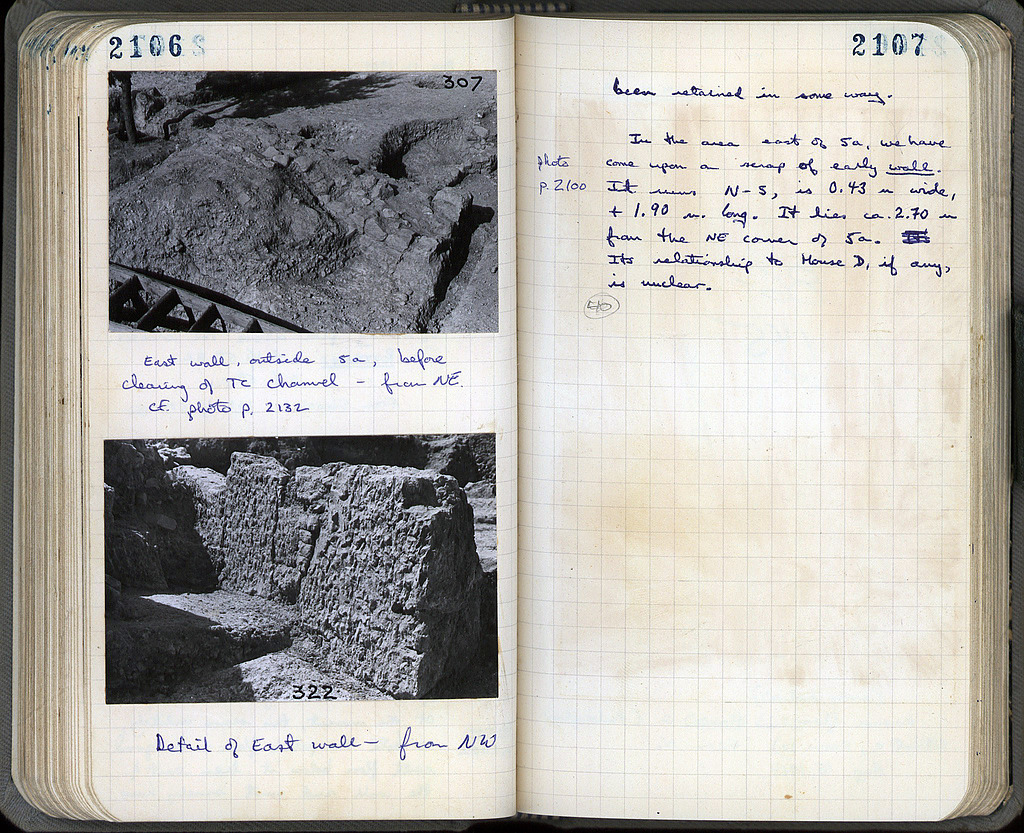 2106
307
East wall, outside 5a, before
clearing of TC channel – from NE.
CF. photo p. 2132
322
Detail of East wall – from NW
2107
been retained in some way.
In the area east of 5a, we have
come upon a scrap of early wall.
photo
p. 2100
It runs N-S, is 0.43 m wide,
+ 1.90 m. long. It lies ca. 2.70 m
from the NE corner of 5a.
Its relationship to House D, if any,
is unclear.